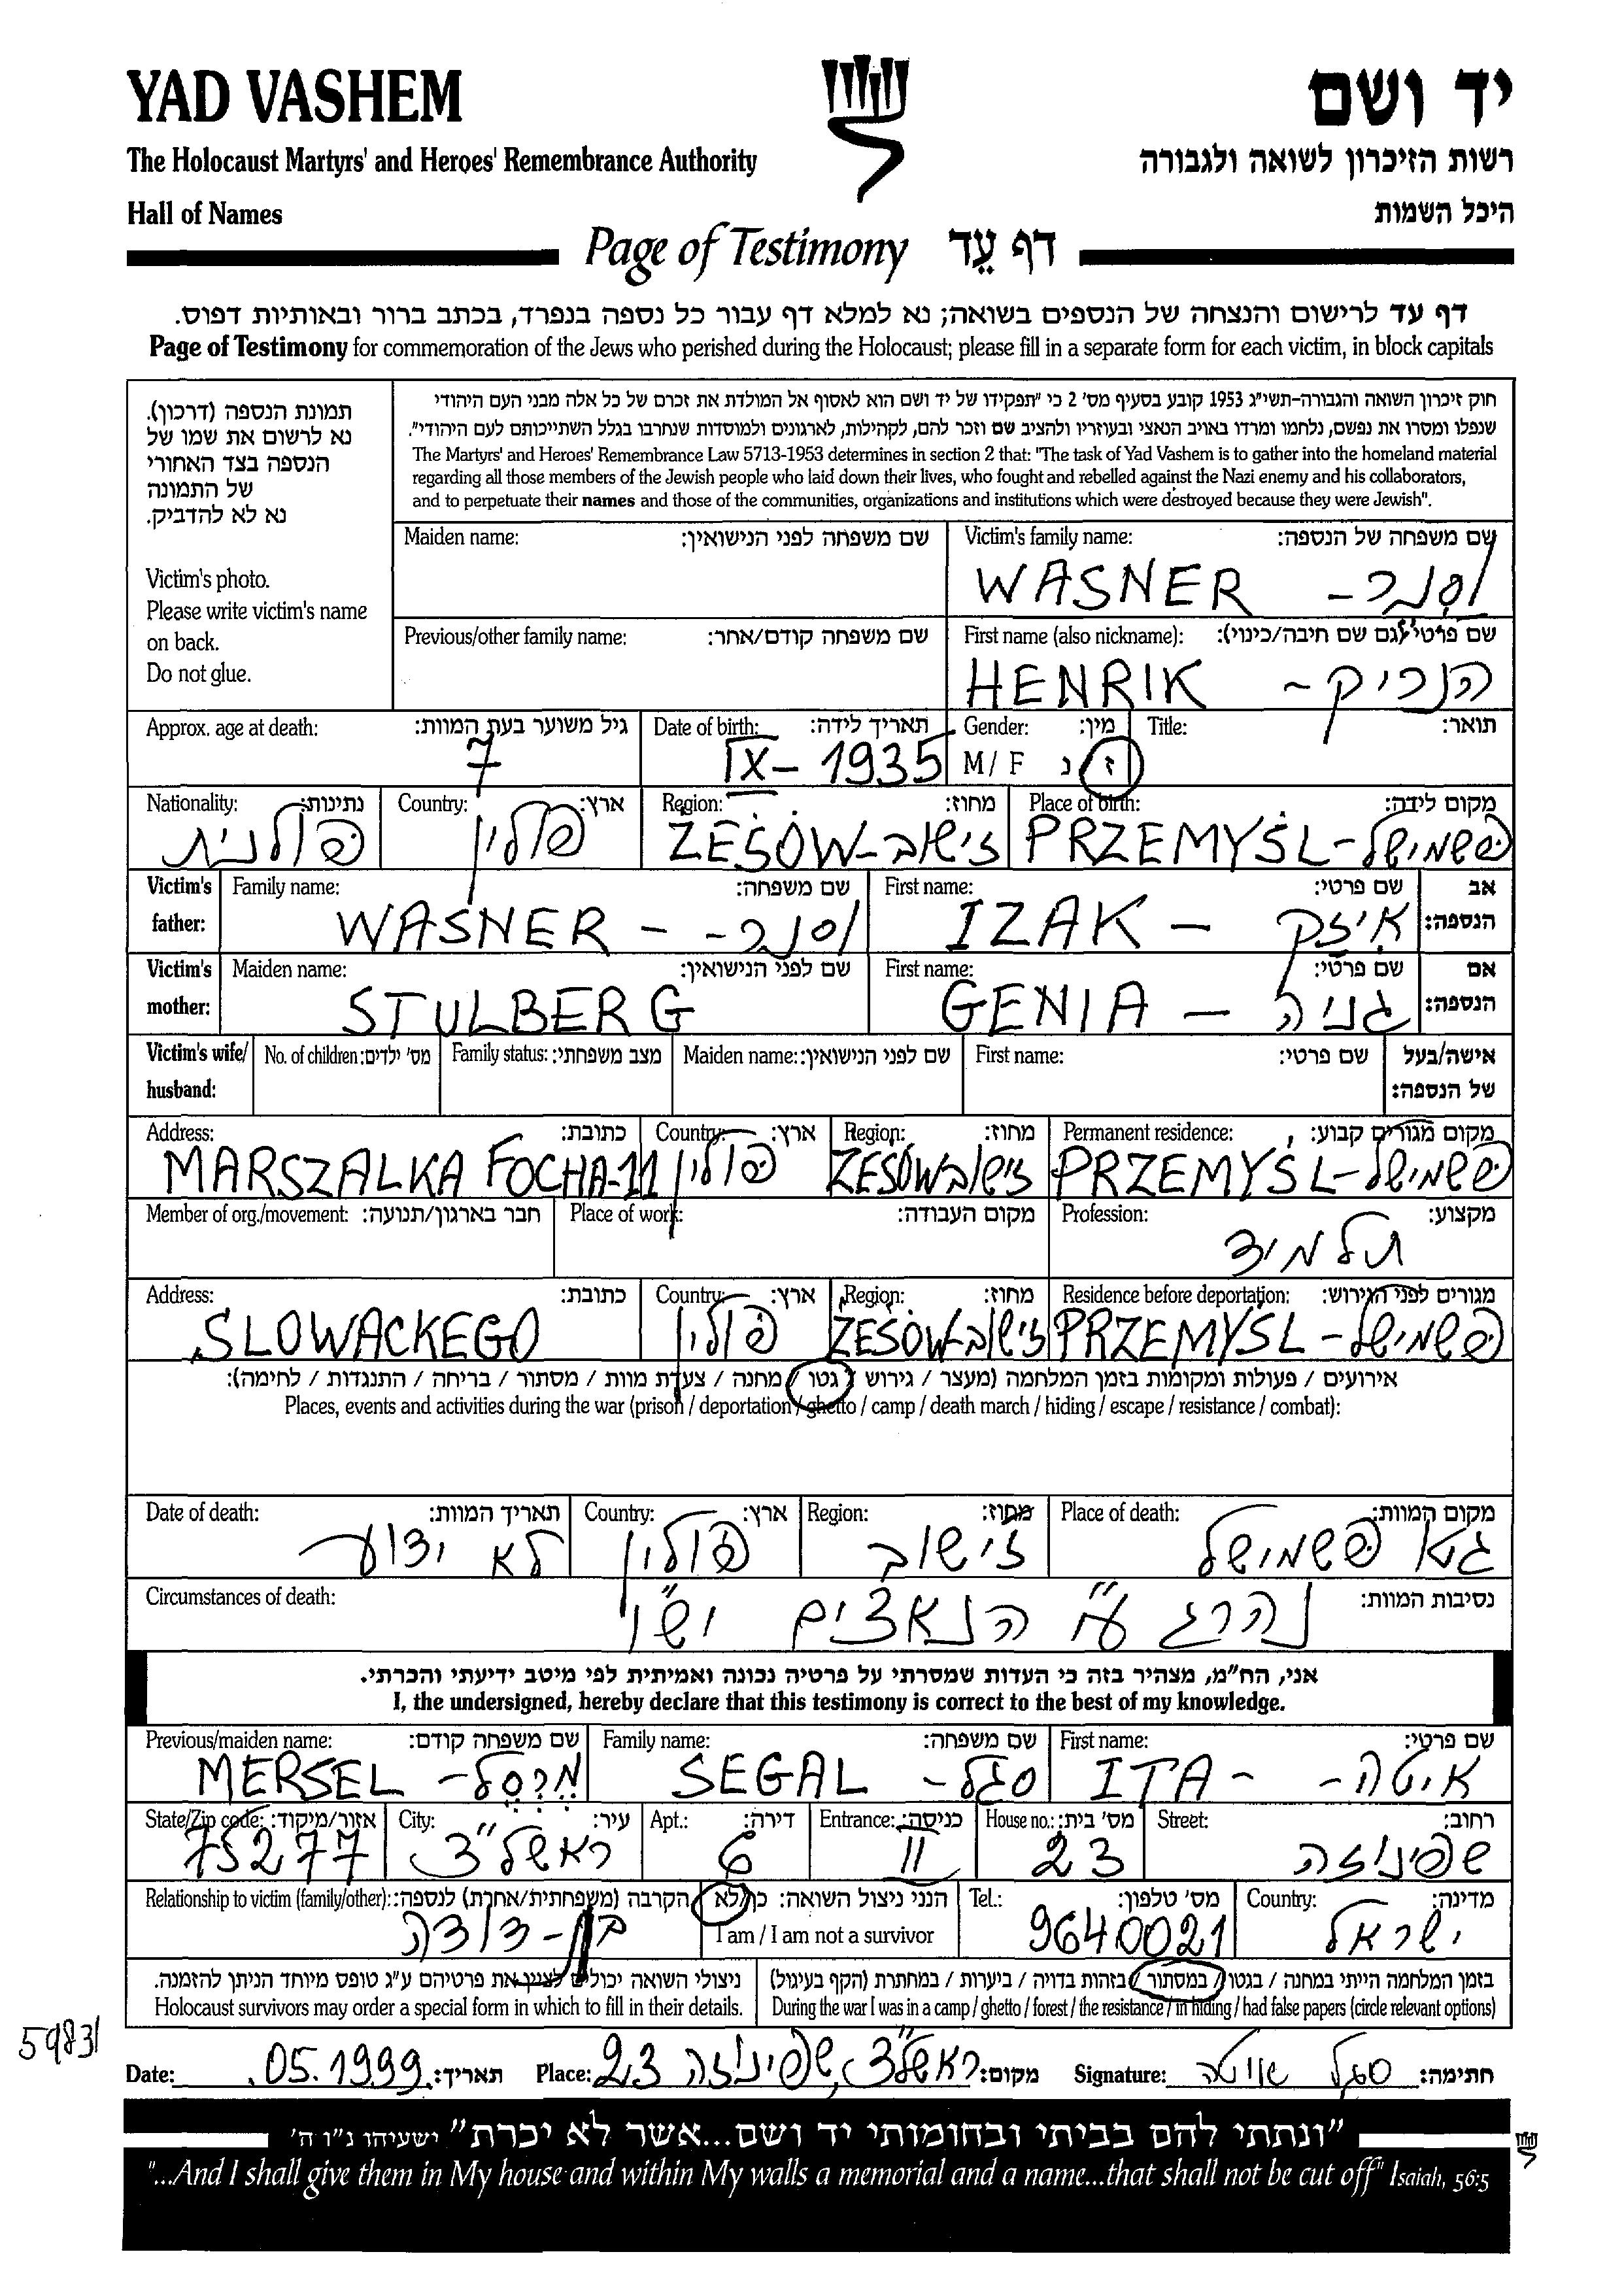 YAD VASHEM
יד ושם
The Holocaust Martyrs' and Heroes' Remembrance Authority
רשות הזיכרון לשואה ולגבורה
Hall of Names
היכל השמות
Page of Testimony דף עֵד
דף עד לרישום והנצחה של הנספים בשואה; נא למלא דף עבור כל נספה בנפרד, בכתב ברור ובאותיות דפוס.
Page of Testimony for commemoration of the Jews who perished during the Holocaust; please fill in a separate form for each victim, in block capitals
תמונת הנספה (דרכון).
נא לרשום את שמו של
הנספה בצד האחורי
של התמונה
נא לא להדביק.
Victim's photo.
Please write victim's name
on back.
Do not glue.
חוק זיכרון השואה והגבורה-תשי"ג 1953 קובע בסעיף מס' 2 כי "תפקידו של יד ושם הוא לאסוף אל המולדת את זכרם של כל אלה מבני העם היהודי
שנפלו ומסרו את נפשם, נלחמו ומרדו באויב הנאצי ובעוזריו ולהציב שם וזכר להם, לקהילות, לארגונים ולמוסדות שנחרבו בגלל השתייכותם לעם היהודי".
The Martyrs' and Heroes' Remembrance Law 5713-1953 determines in section 2 that: "The task of Yad Vashem is to gather into the homeland material
regarding all those members of the Jewish people who laid down their lives, who fought and rebelled against the Nazi enemy and his collaborators,
and to perpetuate their names and those of the communities, organizations and institutions which were destroyed because they were Jewish".
Maiden name: שם משפחה לפני הנישואין:
Victim's family name: שם משפחה של הנספה:
WASNER - וסנר
Previous/other family name: שם משפחה קודם/אחר:
First name (also nickname): שם פרטי (גם שם חיבה/כינוי):
HENRIK - הנריק
Approx. age at death: גיל משוער בעת המוות:
7
Date of birth: תאריך לידה:
IX- 1935
Gender: מין:
M / F ז נ
Title: תואר:
Nationality: נתינות:
פולנית
Country: ארץ:
פולין
Region: מחוז:
ZESÓW-ז'ישוב
Place of birth: מקום לידה:
PRZEMYŚL-פשמישל
Victim's father: אב הנספה:
Family name: שם משפחה:
WASNER - - וסנר
First name: שם פרטי:
IZAK - איזק
Victim's mother: אם הנספה:
Maiden name: שם לפני הנישואין:
STULBERG
First name: שם פרטי:
GENIA - גניה
Victim's wife/ husband: אישה/בעל של הנספה:
No. of children: מס' ילדים:
Family status: מצב משפחתי:
Maiden name: שם לפני הנישואין:
First name: שם פרטי:
Address: כתובת:
MARSZALKA FOCHA-11
Country: ארץ:
פולין
Region: מחוז:
ZESÓW ז'ישוב
Permanent residence: מקום מגורים קבוע:
PRZEMYŚL-פשמישל
Member of org./movement: חבר בארגון/תנועה:
Place of work: מקום העבודה:
Profession: מקצוע:
תלמיד
Address: כתובת:
SLOWACKEGO
Country: ארץ:
פולין
Region: מחוז:
ZESÓW-ז'ישוב
Residence before deportation: מגורים לפני הגירוש:
PRZEMYŚL-פשמישל
אירועים / פעולות ומקומות בזמן המלחמה (מעצר / גירוש / גטו / מחנה / צעדת מוות / מסתור / בריחה / התנגדות / לחימה):
Places, events and activities during the war (prison / deportation / ghetto / camp / death march / hiding / escape / resistance / combat):
Date of death: תאריך המוות:
לא ידוע
Country: ארץ:
פולין
Region: מחוז:
ז'ישוב
Place of death: מקום המוות:
גטו פשמישל
Circumstances of death: נסיבות המוות:
נהרג ע"י הנאצים יש"ו
אני, הח"מ, מצהיר בזה כי העדות שמסרתי על פרטיה נכונה ואמיתית לפי מיטב ידיעתי והכרתי.
I, the undersigned, hereby declare that this testimony is correct to the best of my knowledge.
Previous/maiden name: שם משפחה קודם:
MERSEL - מרסל
Family name: שם משפחה:
SEGAL - סגל
First name: שם פרטי:
ITA - - איטה
State/Zip code: אזור/מיקוד:
75277
City: עיר:
ראשל"צ
Apt.: דירה:
6
Entrance: כניסה:
II
House no.: מס' בית:
23
Street: רחוב:
שפינוזה
Relationship to victim (family/other): הקרבה (משפחתית/אחרת) לנספה:
בן-דודה
הנני ניצול השואה: כן/לא
I am / I am not a survivor
Tel.: מס' טלפון:
9640021
Country: מדינה:
ישראל
ניצולי השואה יכולים לציין את פרטיהם ע"ג טופס מיוחד הניתן להזמנה.
Holocaust survivors may order a special form in which to fill in their details.
בזמן המלחמה הייתי במחנה / בגטו / במסתור / בזהות בדויה / ביערות / במחתרת (הקף בעיגול)
During the war I was in a camp / ghetto / forest / the resistance / in hiding / had false papers (circle relevant options)
59831
Date: .05.1999 תאריך:
Place: ראשל"צ, שפינוזה 23 מקום:
Signature: סגל איטה חתימה:
"ונתתי להם בביתי ובחומותי יד ושם...אשר לא יכרת" ישעיהו נ"ו ה'
"...And I shall give them in My house and within My walls a memorial and a name...that shall not be cut off" Isaiah, 56:5